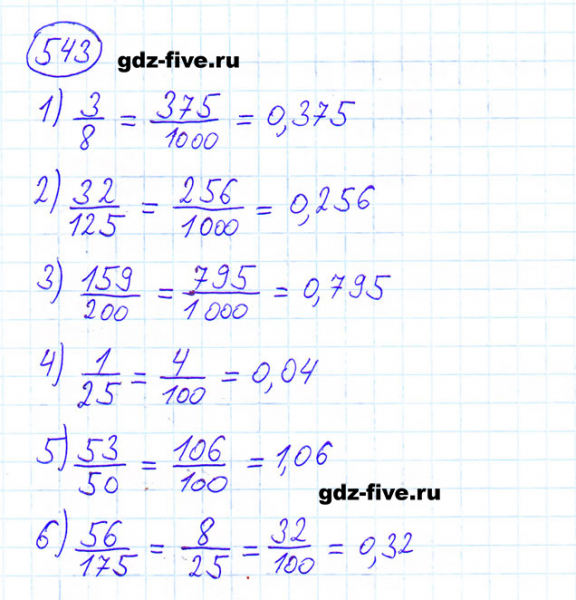 543 gdz-five.ru
1) 3/8 = 375/1000 = 0,375
2) 32/125 = 256/1000 = 0,256
3) 159/200 = 795/1000 = 0,795
4) 1/25 = 4/100 = 0,04
5) 53/50 = 106/100 = 1,06
gdz-five.ru
6) 56/175 = 8/25 = 32/100 = 0,32